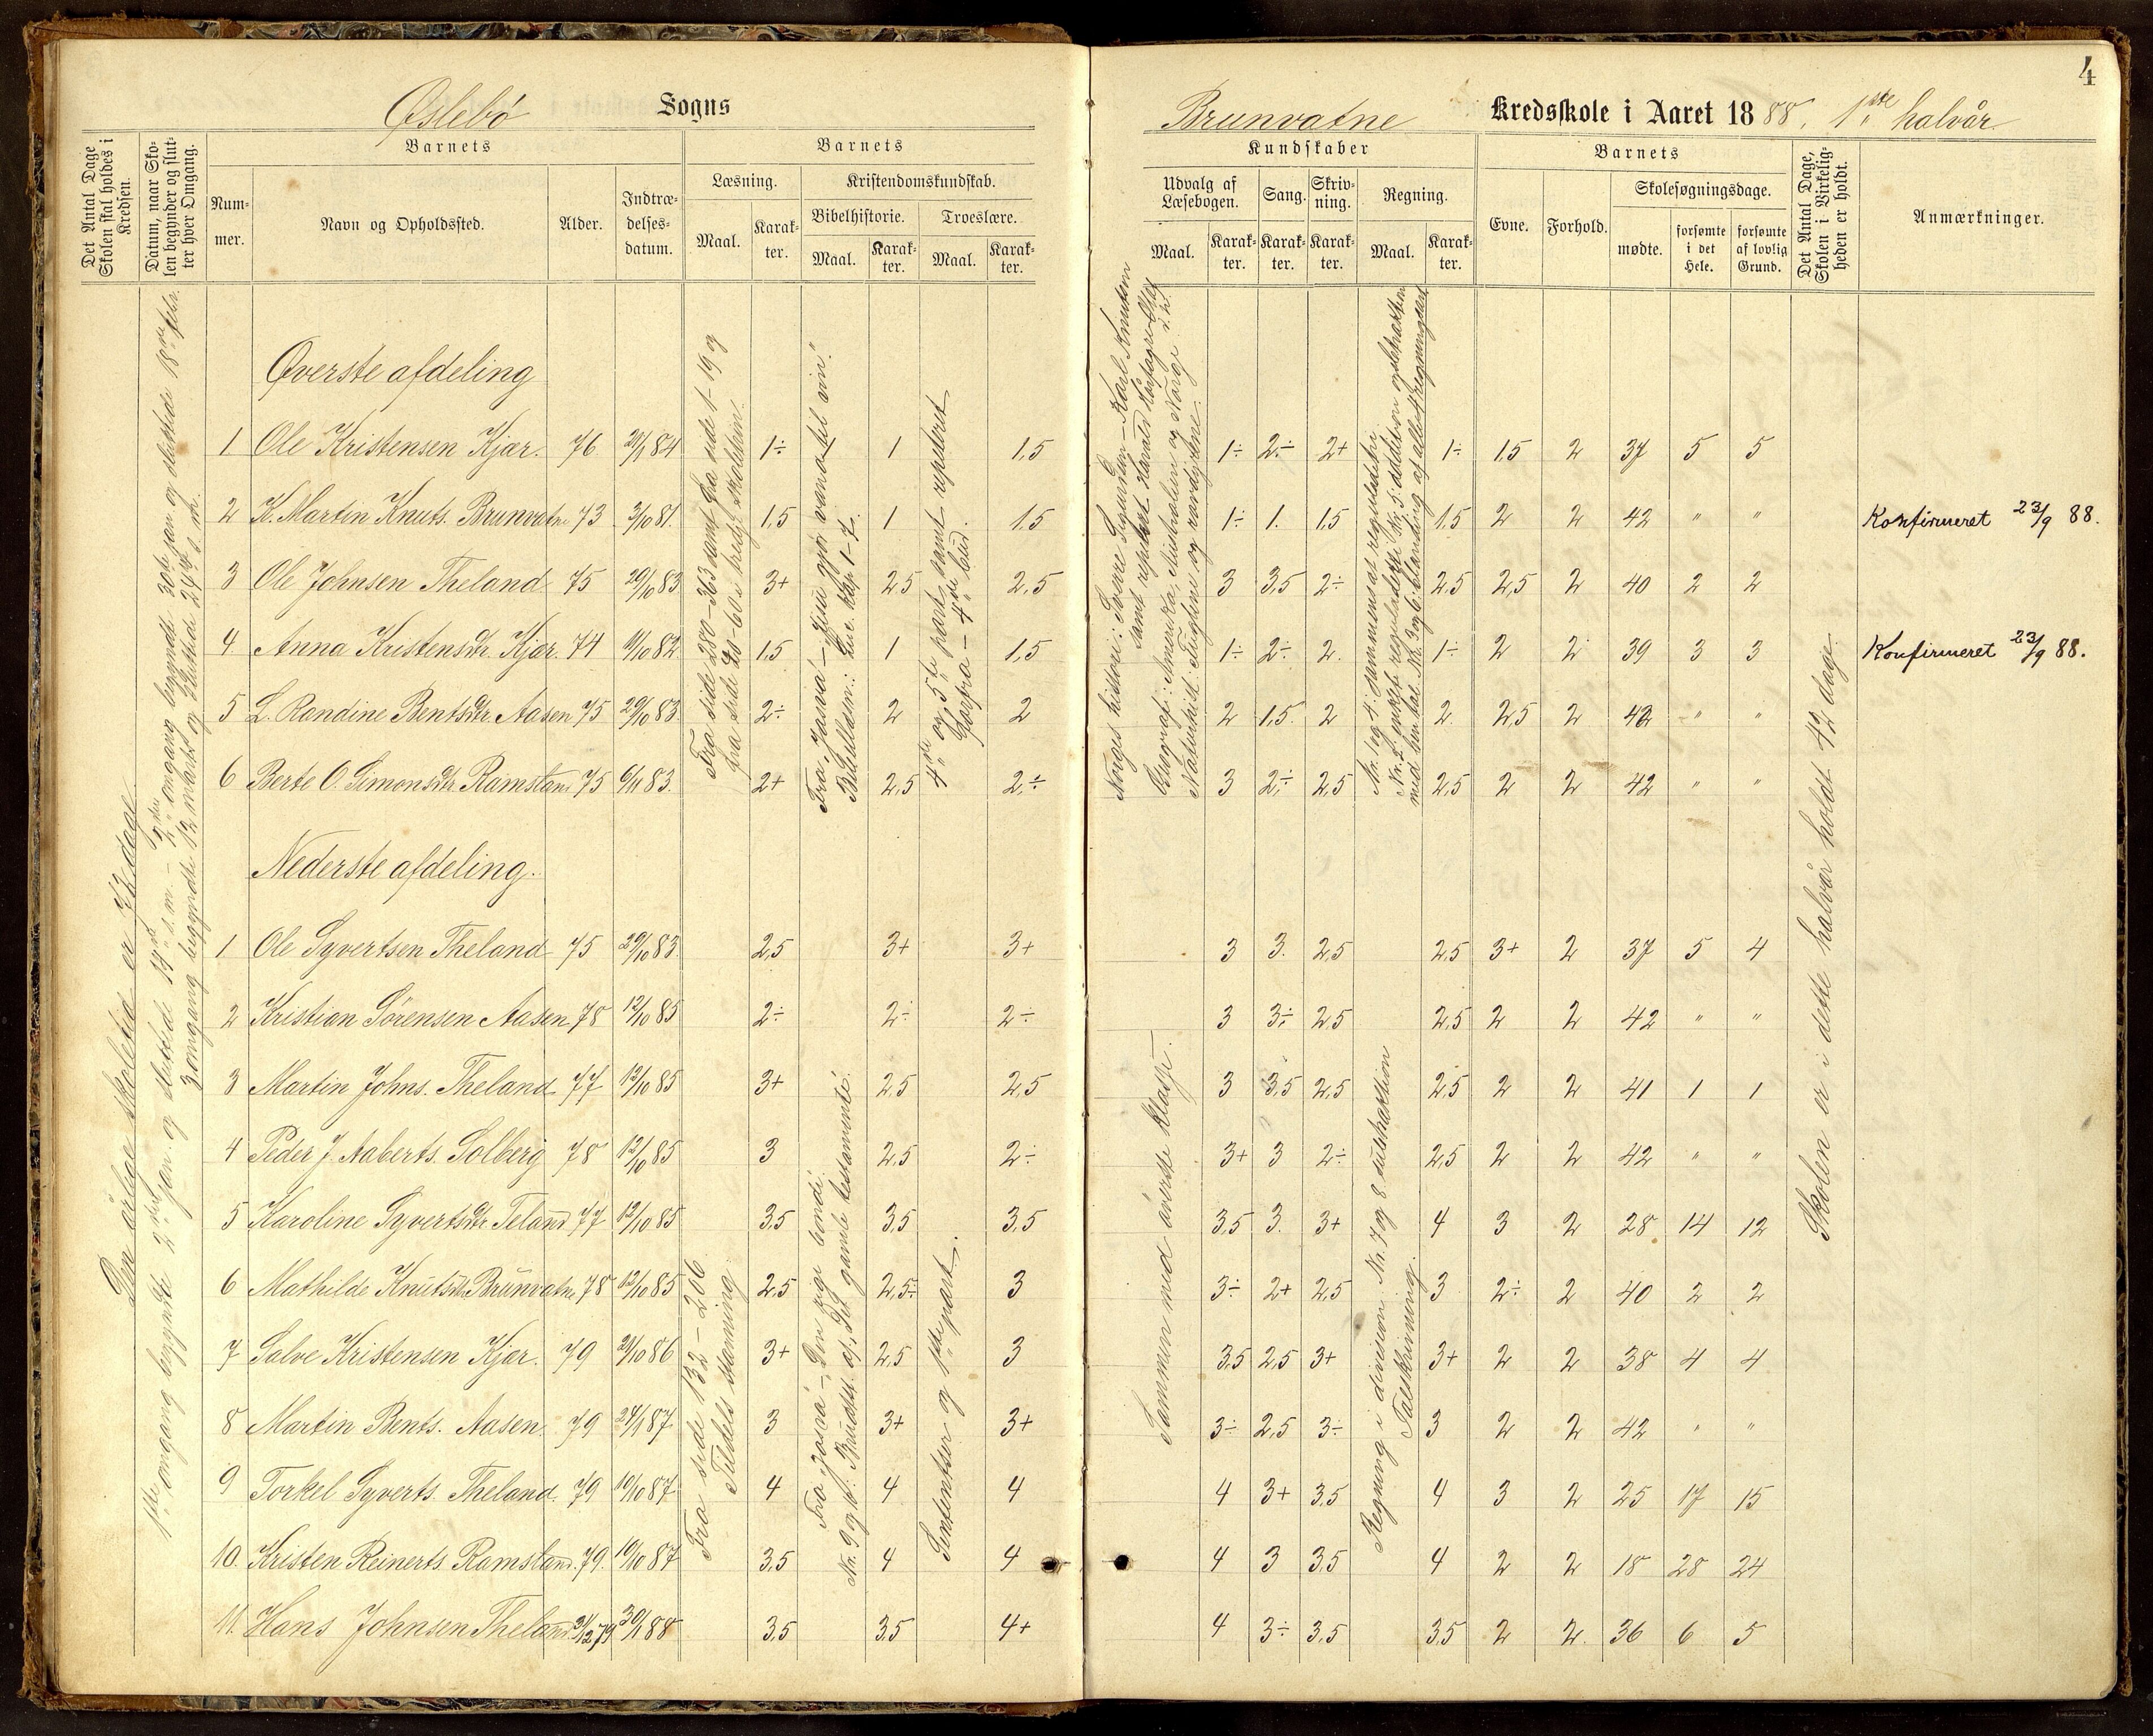 4
Øslebø Sogns
Brunvatne Kredsskole i Aaret 1888, 1ste halvår.
Det Antal Dage Skolen skal holdes i Kredsen.
Datum, naar Skolen begynder og slutter hver Omgang.
Barnets
Nummer.
Navn og Opholdssted.
Alder.
Indtrædelsesdatum.
Barnets
Læsning.
Maal.
Karakter.
Kristendomskundskab.
Bibelhistorie.
Maal.
Karakter.
Troeslære.
Maal.
Karakter.
Kundskaber
Udvalg af Læsebogen.
Maal.
Karakter.
Sang.
Karakter.
Skrivning.
Karakter.
Regning.
Maal.
Karakter.
Barnets
Evne.
Forhold.
Skolesøgningsdage.
mødte.
forsømte i det Hele.
forsømte af lovlig Grund.
Det Antal Dage, Skolen i Virkeligheden er holdt.
Anmærkninger.
Den årlige skoletid er 72 dage.
1ste omgang begyndte 2den jan. og sluttede 14de s. m. – 2den omgang begyndte 30te jan og sluttede 18de febr.
3 omgang begyndte 12 marts og sluttede 24de s. m.
Øverste afdeling
1 Ole Kristensen Kjær. 76 84 1÷ 1 1,5 1÷ 2÷ 2+ 1÷ 1,5 2 37 5 5
2 K. Martin Knuts. Brunvatne 73 3/10 81. 1,5 1 1,5 1÷ 1. 1,5 1,5 2 2 42 " " Konfirmeret 23/9 88.
3 Ole Johnsen Theland 75 29/10 83 3+ 2,5 2,5 3 3,5 2÷ 2,5 2,5 2 40 2 2
4 Anna Kristensdtr. Kjær. 74 82. 1,5 1 1,5 1÷ 2÷ 2. 1÷ 2 2 39 3 3 Konfirmeret 23/9 88.
5 L. Randine Bentsdtr. Aasen 75 29/10 83. 2÷ 2 2 2 1,5. 2 2. 2,5 2 42 " "
6 Berte O. Simonsdtr. Ramsland 75 6/11 83. 2+ 2,5 2,÷ 3 2÷ 2,5 2,5 2 2 42 " "
Fra side 280–363 samt fra side 1–19 og
fra side 28–60 i bredst. skolebibn.
Fra „Josva" – „Jesu gjør vand til vin".
Bibellæsn.: Luc. kap 1–7.
4de og 5te part samt repeteret
fra – 4de bud.
Norges historie: Sverre Sigurdsøn – Karl Knutsen
samt repetert Harald Hårfagre –
Geografi: Amerika, Australien og Norge
Naturhist: Fuglene og
Nederste afdeling.
1 Ole Syvertsen Theland 75 29/10 83. 2,5 3+ 3+ 3 3. 2,5 2,5 3+ 2 37 5 4
2 Kristian Sørensen Aasen 78 12/10 85 2÷ 2÷ 2÷ 3 3÷ 2,5 2,5 2 2 42 " "
3 Martin Johns. Theland 77 12/10 85 3+ 2,5 2,5 3 3,5 2,5 2,5 2 2 41 1 1
4 Peder J. Aaberts. Solberg 78 12/10 85 3 2,5 2÷ 3+ 3 2÷ 2,5 2 2 42 " "
5 Karoline Syvertsdtr. Teland 77 12/10 85 3,5 3,5 3,5 3,5 3. 3+ 4 3 2 28 14 12
6 Mathilde Knutsdtr. Brunvatne 78 12/10 85 2,5 2,5÷ 3 3÷ 2+ 2,5 3 2÷ 2 40 2 2
7 Salve Kristensen Kjær. 79 86 3+ 2,5 3 3,5 2,5 3+ 3+ 2 2 38 4 4
8 Martin Bents. Aasen 79 24/1 87 3 3+ 3+ 3÷ 2,5 3÷ 3 2 2 42 " "
9 Torkel Syverts. Theland. 79 10/10 87 4 4 4 4 3+ 3,5 4 3 2 25 17 15
10. Kristen Reinerts. Ramsland. 79. 10/10 87 3,5 4 4 4 3 3,5 4 2 2 18 28 24
11. Hans Johnsen Theland 31/12 79 30/1 88 3,5 3,5 4+ 4 3÷ 3,5 3,5 2 2. 36 6 5
Fra side 132–206
Tildels stavning.
Fra „Josva" – „Den rige bonde".
Nr. 9 og 10: Brudst. af „Det gamle testamente".
Sententser og 1ste part.
Sammen med øverste klasse.
Regning i division. Nr. 7 og 8 subtraktion
Talskrivning.
Skolen er i dette halvår holdt 42 dage.